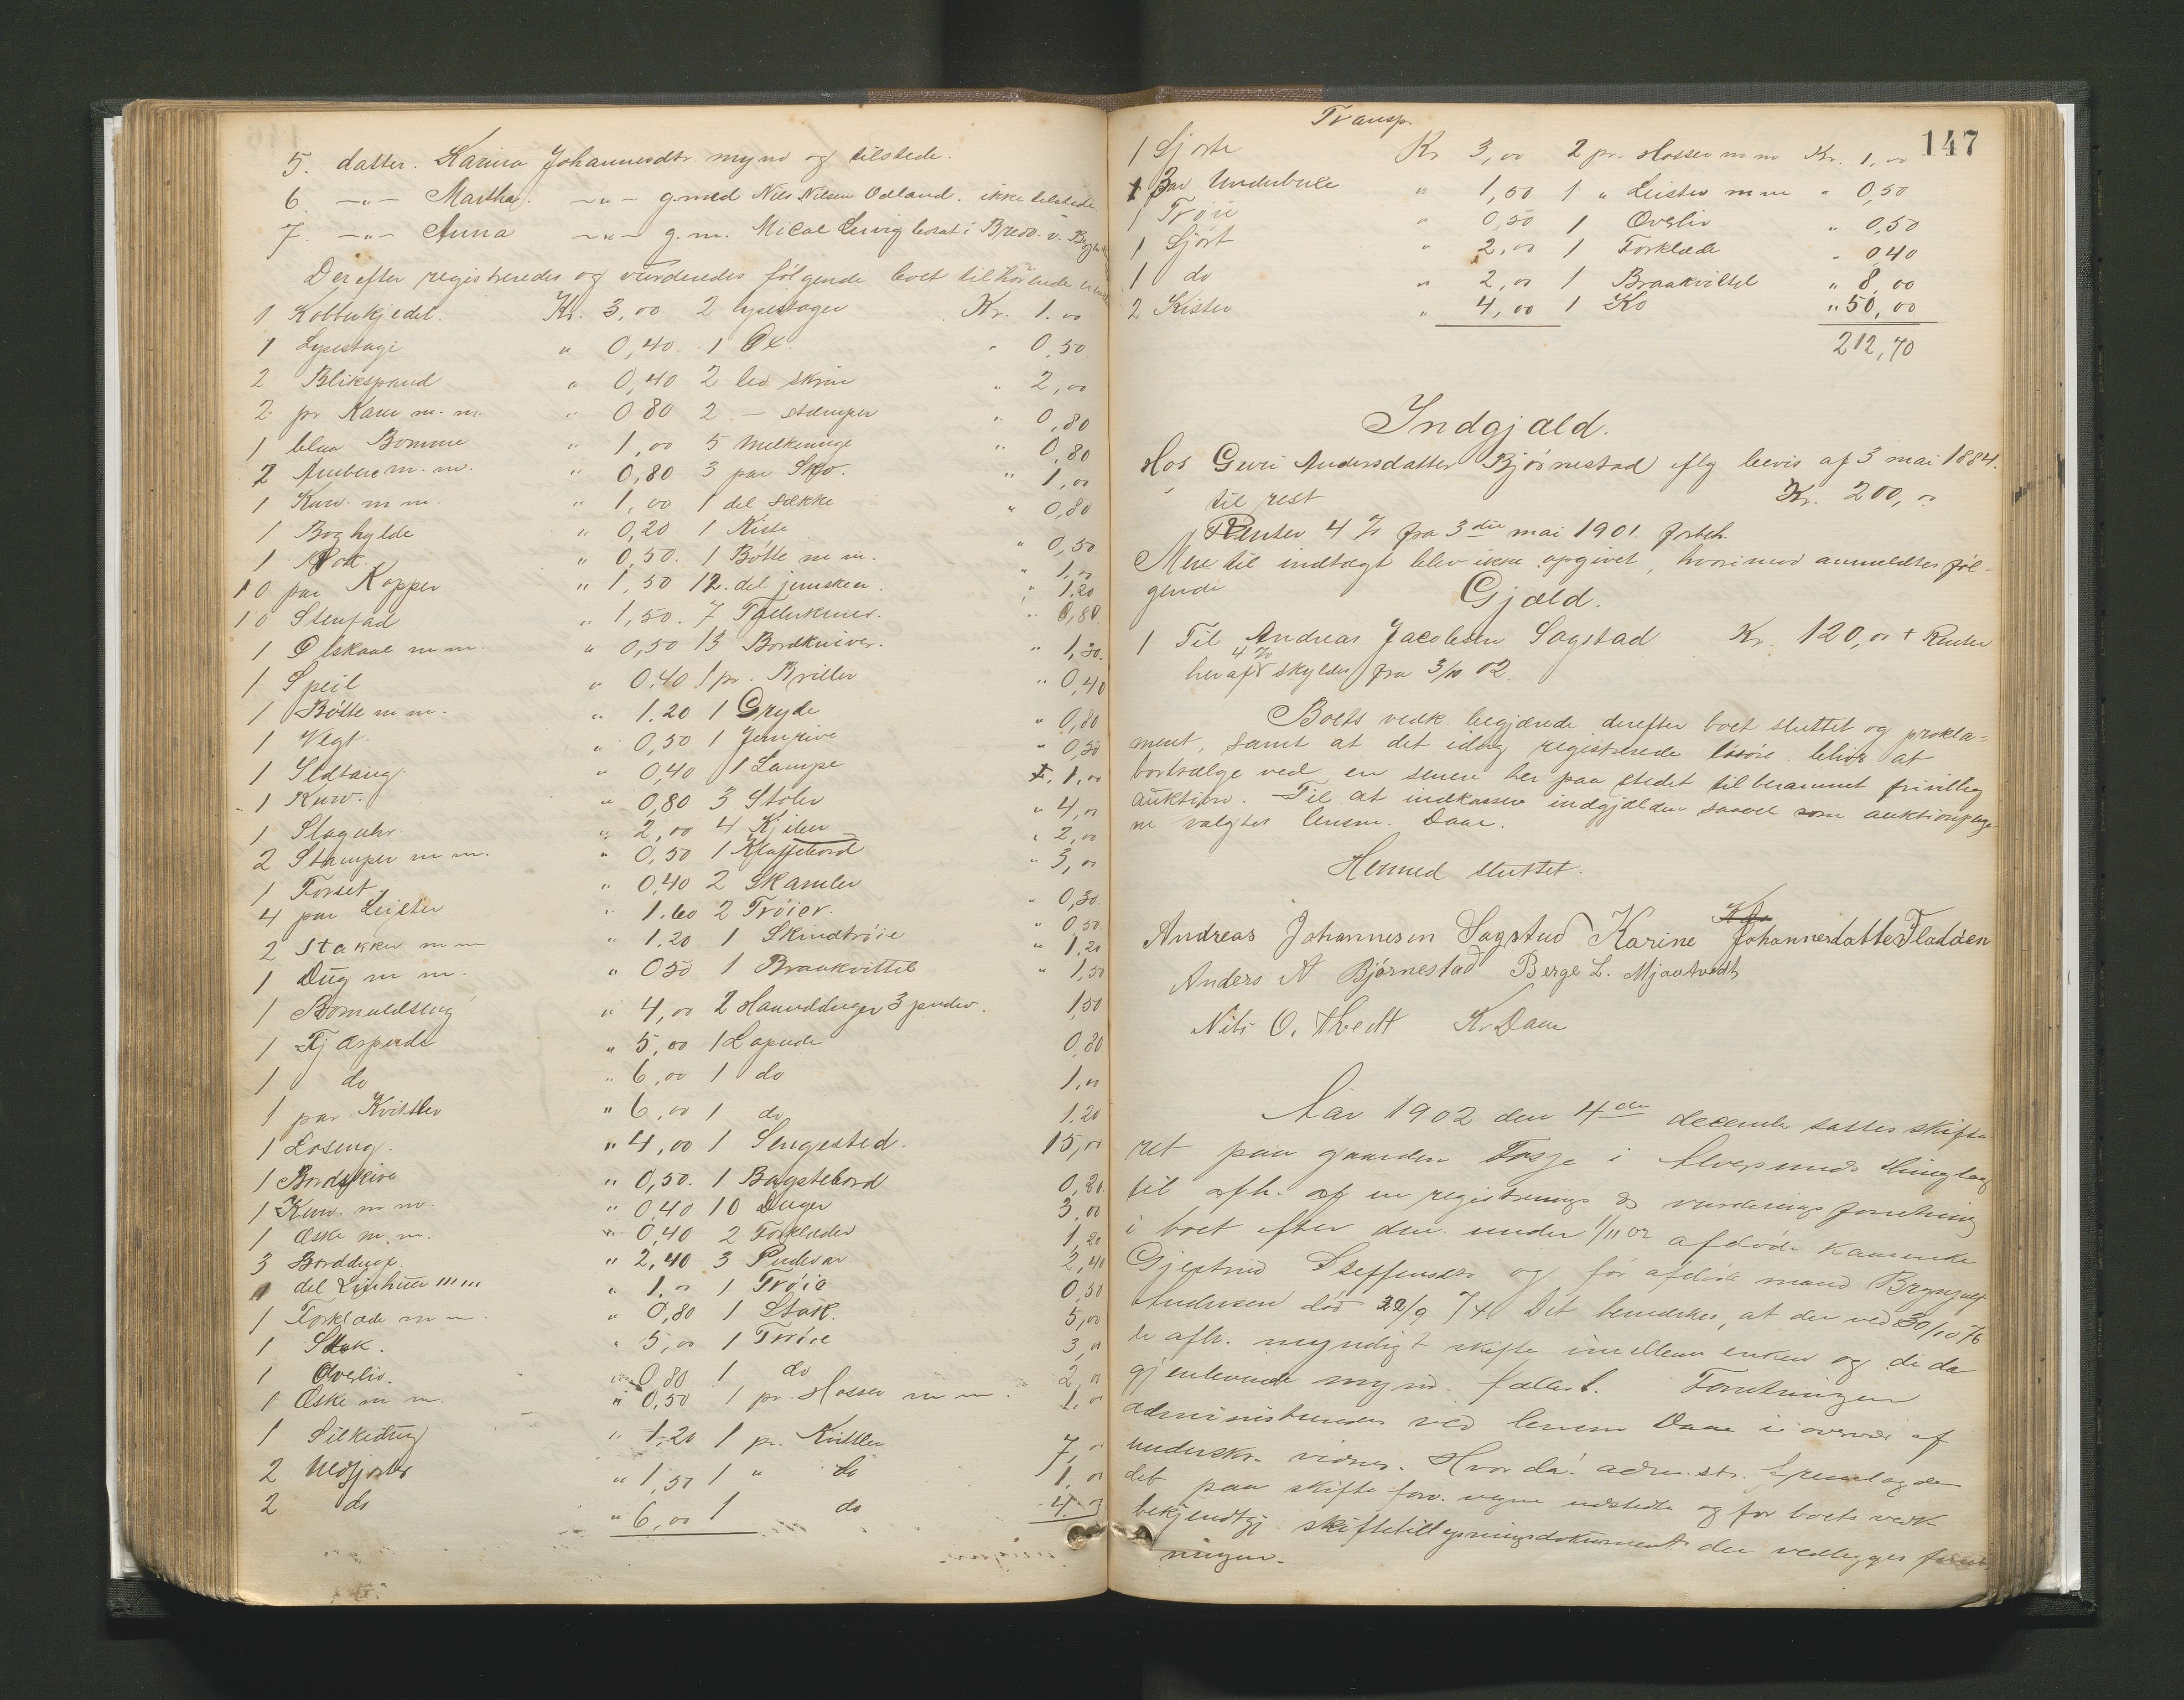 5. datter. Karina Johannesdtr. mynd og tilstede.
6. -"- Martha. -"- g. med Nils Nilsen Odland. ikke tilstede.
7. -"- Anna -"- g. m. Micael
Derefter registreredes og vurderedes følgende boet tilhørende
1 Kobberkjedel. Kr. 3,00 2 lysestager Kr. 1.00
1 Lysestage " 0,40. 1 Øx. " 0,50
2 Blikspand " 0,40 2 skrin " 2,00
2 pr. Karer m. m. " 0 80 2 - stamper " 0,80
1 blaa Bomme " 1,00 5 Melkeringe " 0,80
2 Ambere m. m. " 0,80 3 par Sko. " 1,00
1 Kurv. m m. " 1,00 1 del sække " 0,80
1 Boghylde " 0,20 1 Kiste " 0,50
1 Pot. " 0,50. 1 Bötte m m. " 1,00
10 par Kopper " 1,50 12. del jernsker. " 1,20
10 Stenfad " 1,50. 7 " 0,80.
1 Ølskaal m m. " 0,50 13 Bordkniver. " 1,30.
1 Speil " 0,40 1 pr. Briller " 0,40
1 Bötte m m. " 1.20 1 Gryde " 0,80
1 Vegt. " 0,50 1 Jernrive " 0,50
1 Ildtang. " 0,40 1 Lampe 1,00
1 Kurv. " 0,80 3 Stoler " 4,00
1 Slaguhr. " 2,00 4 " 2,00
2 Stamper m m. " 0,50 1 Klaffebord " 3,00
1 Forset. " 0,40 2 Skamler " 0,30
4 par Leister " 1.60 2 Trøier. " 0,50
2 Stakker m m " 1,20 1 Skindtrøie " 1,20
1 Dug m m. " 0 50 1 Braakvittel " 1,50
1 " 4,00 2 Haandduger 3 puder. 1,50
1 Fjærpude " 5,00 1 Lapude 0,80
1 do " 6,00 1 do 1,00
1 par Kvitler " 6,00 1 do 1.20
1 Loseng. " 4,00 1 Sengested. 15,00
1 Bordskive " 0,50. 1 Bagstebord 0,20
1 Kurv. m m. " 0,40 10 Duger 3,00
1 Æske m. m. " 0,40 2 Forklæder 1,20
3 Bordduge. " 2,40 3 Pudevar. 2,40
1 del m m " 1.00 1 Trøie 0,50
1 Forklæde m m. " 0,80 1 Stak. 5,00
1 Stak. " 5,00 1 Trøie 3,00
1 Overliv. " 0,80 1 do 2,00
1 Æske m m. " 0,50 1 pr. Hosser m m. 1,00
1 Silkedug " 1,20 1 pr. Kvitler 7,00
2 " 1,50 1 " do 1,00
2 do " 6,00 1 do 4.00
147
Transp.
1 Sjorte Kr 3,00 2 pr. Hosser m m Kr. 1,00
1 Par Underbuxe " 1,50 1 " Leister m m " 0,50
1 Trøie " 0,50 1 Overliv " 0,50
1 Sjort " 2,00 1 Forklæde " 0,40
1 do " 2,00 1 Braakvittel " 8,00
2 Kister " 4,00 1 Ko " 50,00
212,70
Indgjæld.
Hos Guri Andersdatter Bjørnestad iflg bevis af 3 mai 1884.
til rest Kr. 200,00
Renter 4 % fra 3die mai 1901. forbeh.
Mere til indtægt blev ikke opgivet, hvorimod anmeldtes føl-
gende Gjæld.
1 Til Andreas Jacobsen Sagstad Kr. 120,00 + Renter
heraf 4 % skyldes fra 3/10 02.
Boets vedk. begjærede derefter boet sluttet og prokla-
meret, samt at det idag registrerede løsøre blives at
bortsælge ved en senere her paa stedet tilberammet frivillig
auktion. Til at indkassere indgjælden saavel som auktionspenge-
ne valgtes lensm. Daae.
Hermed sluttet.
Andreas Johannesen Sagstad Karine Johannesdatter Fladøen
Anders A Bjørnestad Berge L. Mjaatvedt
Nils O. Tvedt K. Daae
Aar 1902 den 4de decembr. sattes skifte
ret paa gaarden Fosse i Alversunds thinglag
til afh. af en registrerings og vurderings forretning
i boet efter den under 1/11 02 afdøde kaarenke
Gjertrud Steffensdtr og før afdøde mand Brynjulf
Andersen död 30/9 74. Det bemerkes, at der ved 30/10 76
er afh. myndigt skifte imellem enken og de da
gjenlevende mynd. fælles b. Forretningen
administreredes ved lensm Daae i overvær af
underskr. vidner. Hvorda! adm.str. fremlagde
det paa skifte forv. vegne udstedte og for boets vedk.
bekjendtgj. skiftetillysningsdokument der vedlægges forret-
ningen.